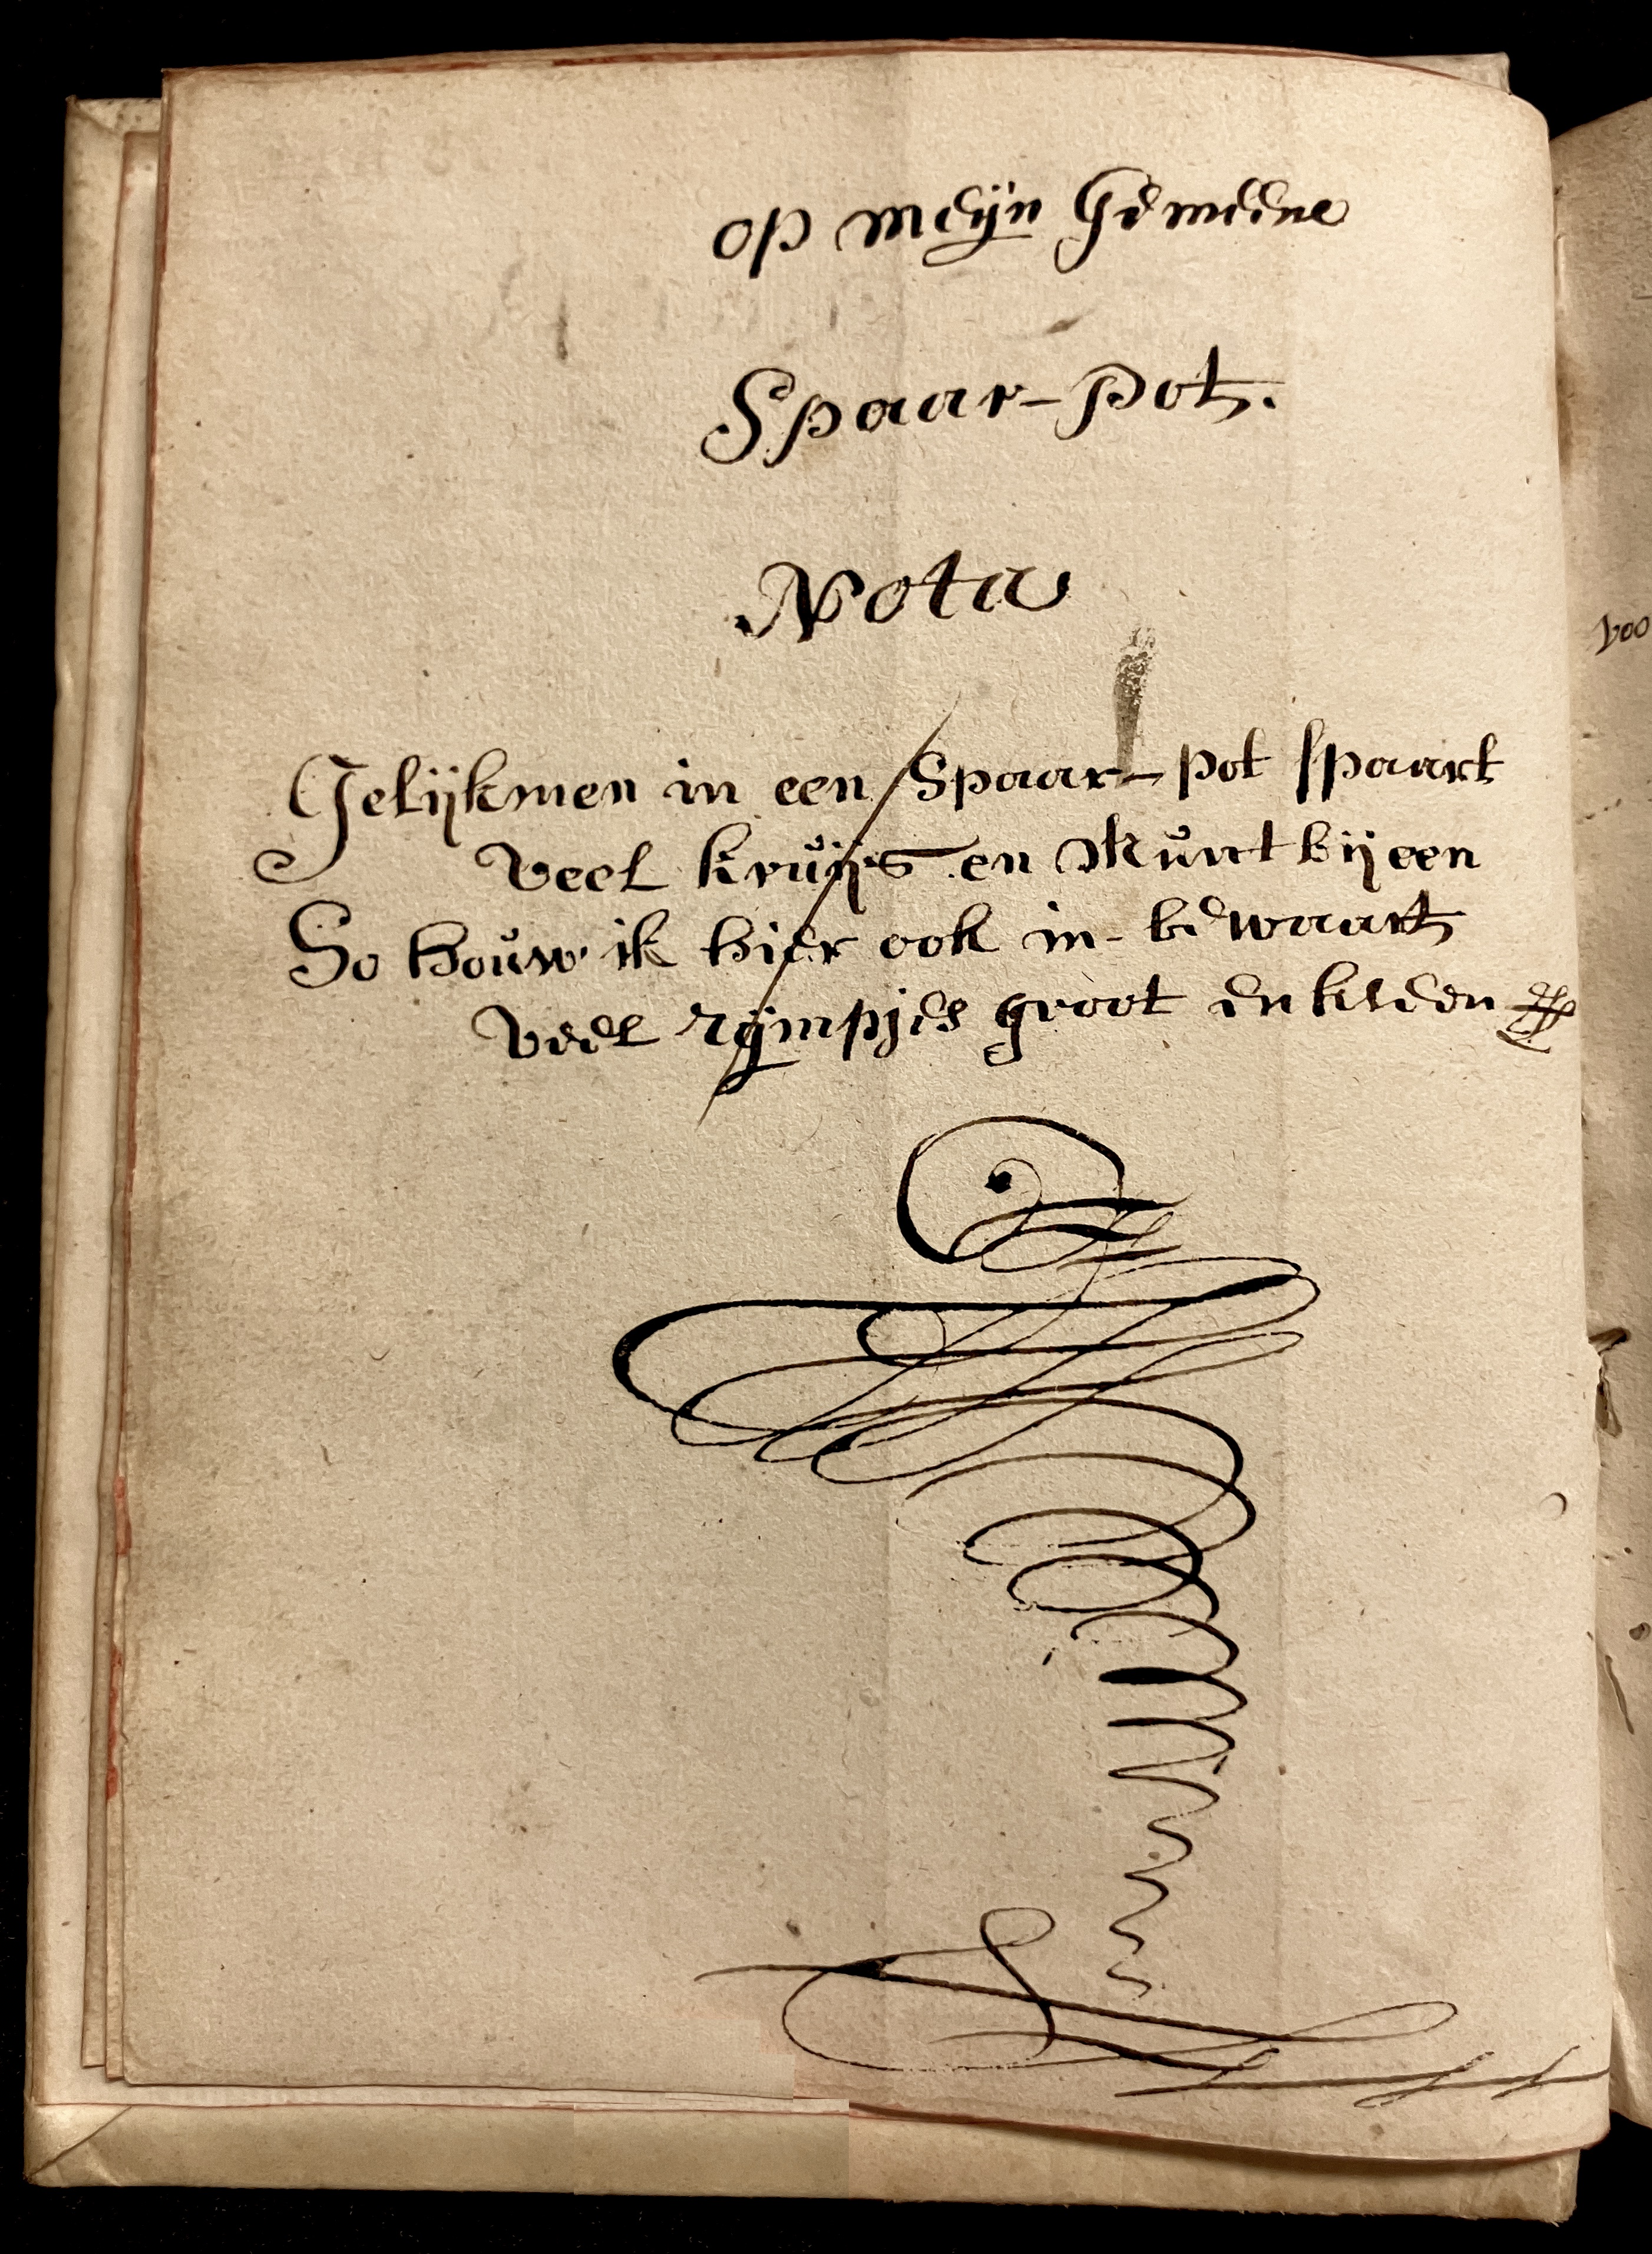 op meijn Gemeene
Spaar-Pot.
Nota
Gelijkmen in een Spaar-pot spaart
veel kruijs en Munt bijeen
So houw ik hier ook in-bewaart
veel rijmpjes groot en kleen
voo